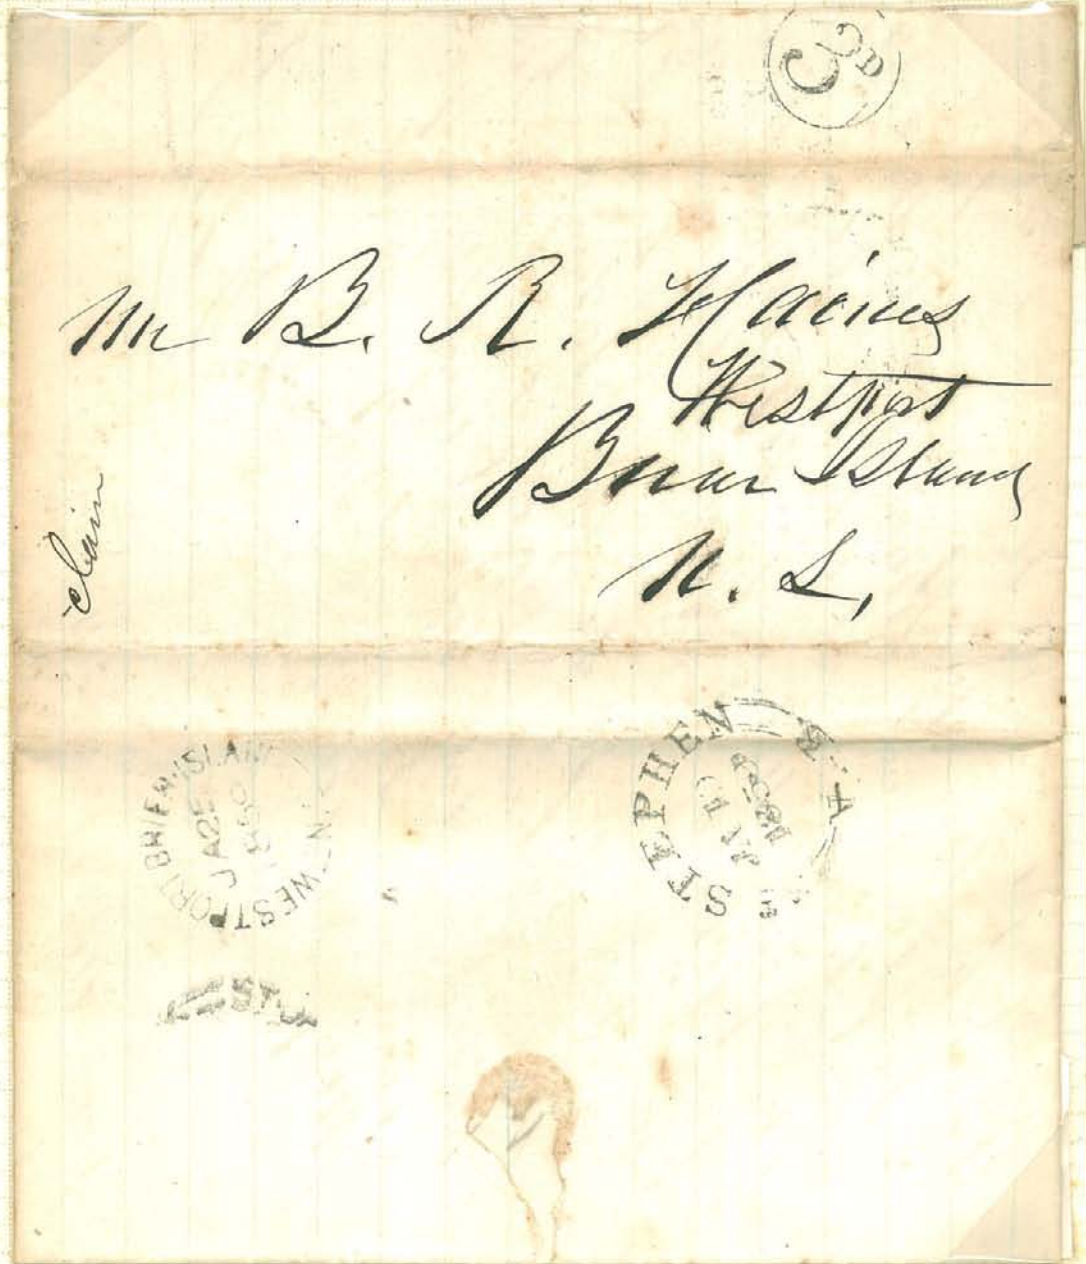 3 D
Mr B. R. Haines
Westport
Briar Island
N. S.
claim
WESTPORT BRIER ISLAN
JA 25
1860
ST STEPHEN
JA 19
1860